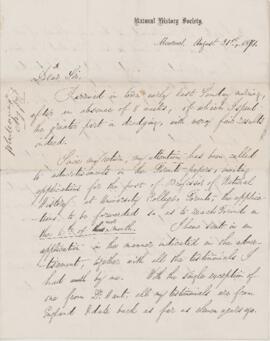 Natural History Society.
Montreal, August 31st, 1871.
Dear Sir,
I arrived in town early last Sunday morning,
after an absence of 8 weeks, of which I spent
the greater part in dredging, with very fair results
indeed.
Since my return, my attention has been called
to advertisements in the Toronto papers, inviting
applications for the post of Professor of Natural
History, at University College, Toronto; the applica-
tions to be forwarded so as to reach Toronto on
the 6th of month. I have sent in an
application in the manner indicated in the adver-
tisement, together with all the testimonials I
had with by me. With the single exception of
one from Dr. Hunt, all my testimonials are from
England & date back as far as eleven years ago.